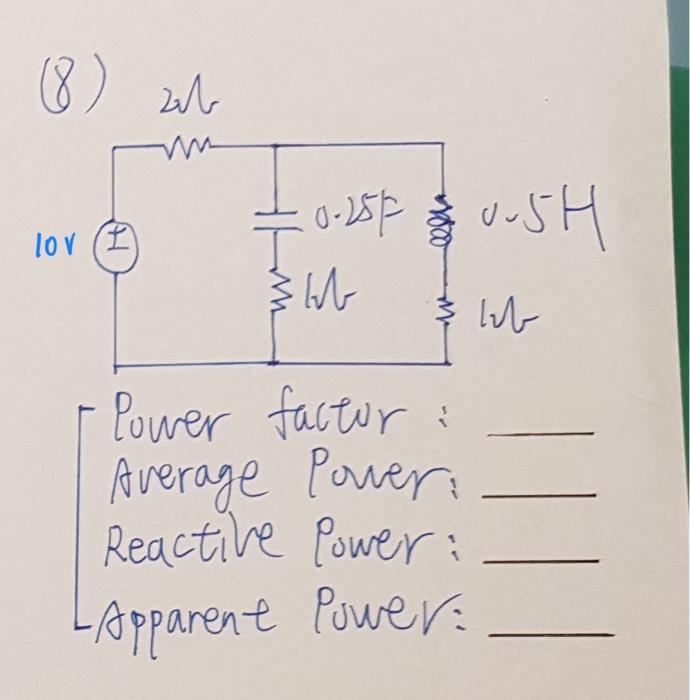 (8)
2Ω
10V
0.25F
0.5H
1Ω
1Ω
Power factor :
Average Power:
Reactive Power:
Apparent Power: